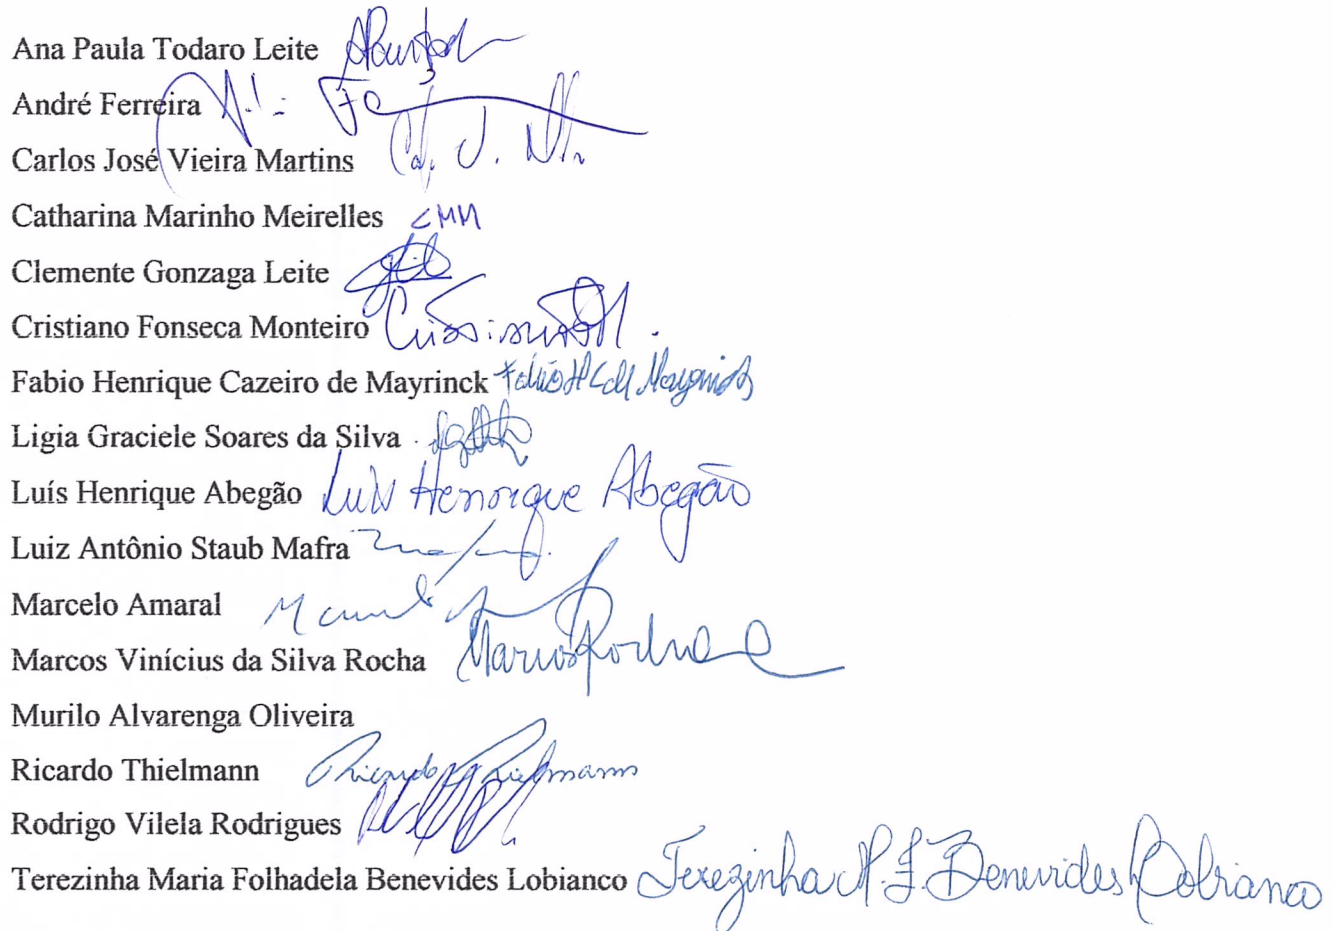 Ana Paula Todaro Leite
André Ferreira
Carlos José Vieira Martins
Catharina Marinho Meirelles CMM
Clemente Gonzaga Leite
Cristiano Fonseca Monteiro
Fabio Henrique Cazeiro de Mayrinck
Ligia Graciele Soares da Silva
Luís Henrique Abegão Luís Henrique Abegão
Luiz Antônio Staub Mafra
Marcelo Amaral
Marcos Vinícius da Silva Rocha Marcos Rocha
Murilo Alvarenga Oliveira
Ricardo Thielmann Ricardo Thielmann
Rodrigo Vilela Rodrigues
Terezinha Maria Folhadela Benevides Lobianco Terezinha M. F. Benevides Lobianco